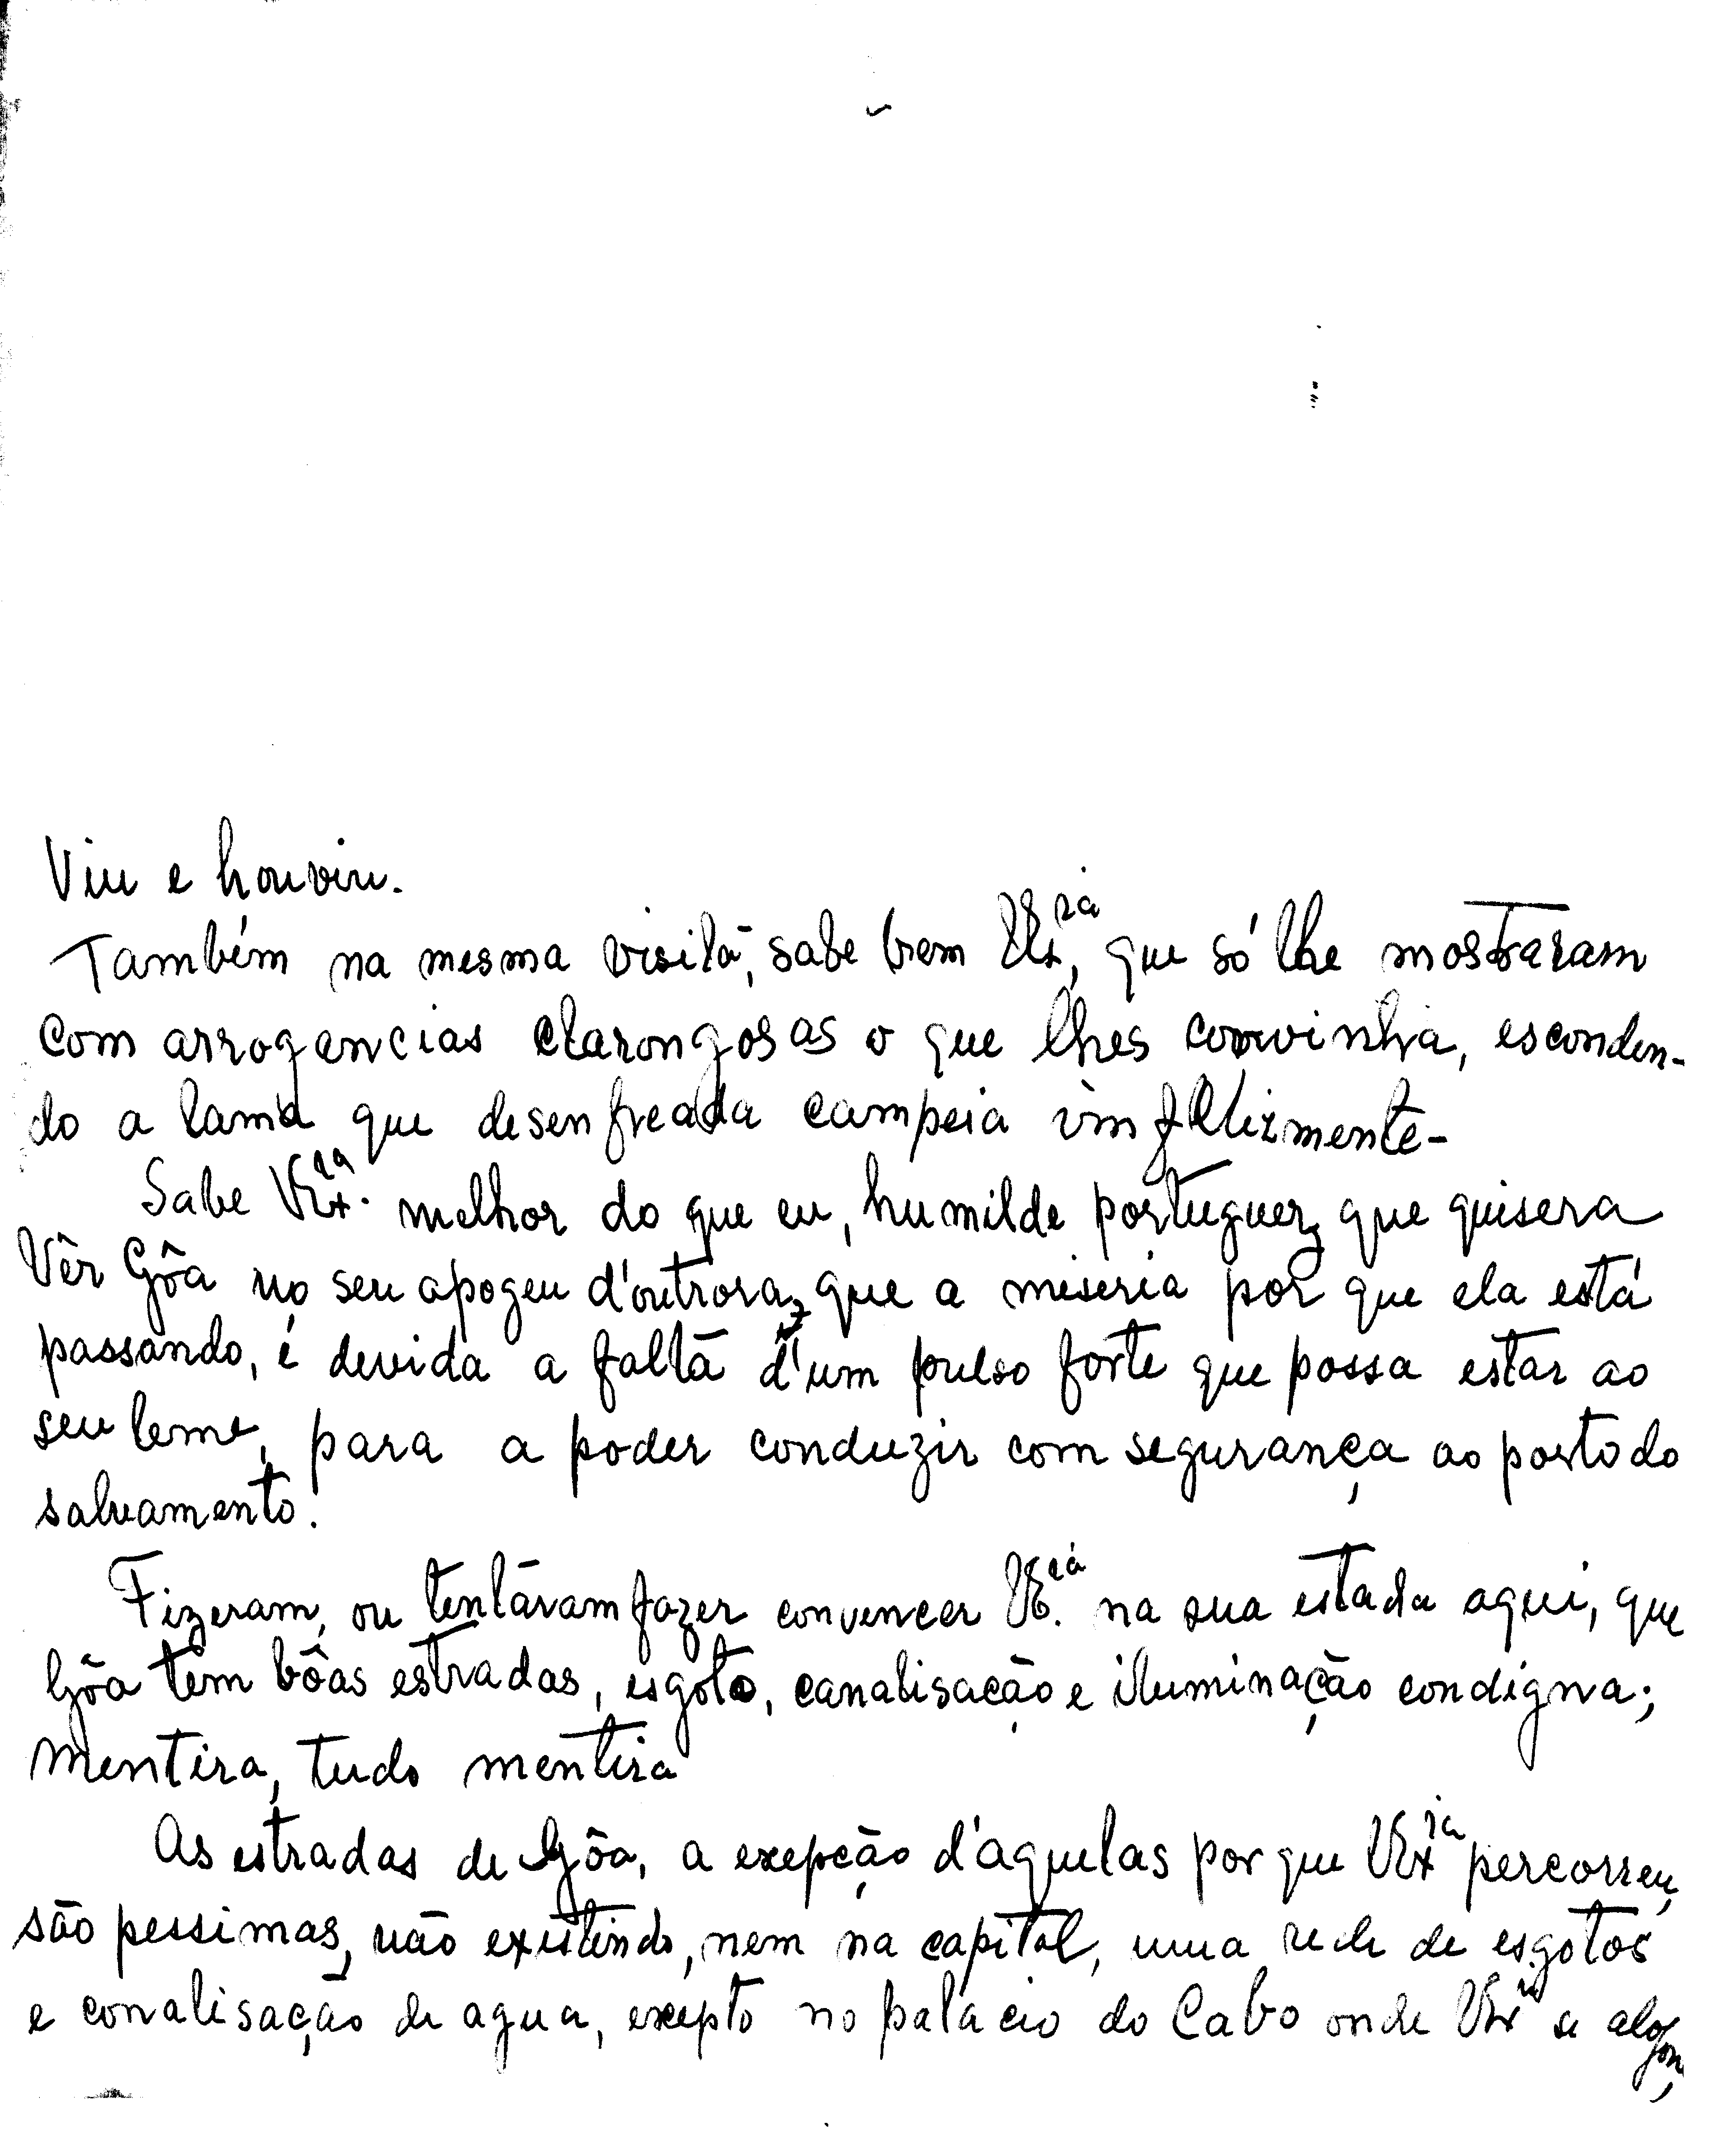 Viu e houviu.
Também na mesma visita, sabe bem VEx.ia, que só lhe mostraram
com arrogancias clarongosas o que lhes convinha, esconden-
do a lama que desenfreada campeia imfelizmente-
Sabe VEx.ia melhor do que eu, humilde portuguez, que quisera
Vêr Gôa no seu apogeu d'outrora, que a miseria por que ela está
passando, é devida a falta d'um pulso forte que possa estar ao
seu leme, para a poder conduzir com segurança ao porto do
salvamento.
Fizeram, ou tentàram fazer convencer VE.cia na sua estada aqui, que
Gôa tem bôas estradas, esgoto, canalisação e iluminação condigna;
Mentira, tudo mentira
As estradas de Gôa, a exepção d'aquelas por que VEx.ia percorreu,
são pessimas, não existindo, nem na capital, uma rede de esgotos
e canalisação de agua, exepto no palacio do Cabo onde VEx.ia se alojou,